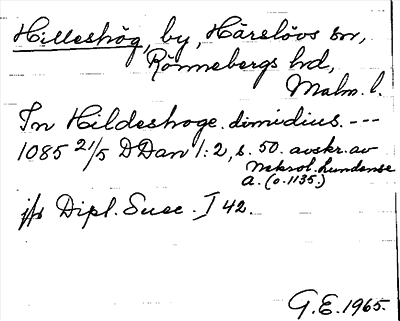 Hilleshög, by, Härslövs sn,
Rönnebergs hd,
Malm. l.
In Hildeshoge. dimidius. ---
1085 21/5 DDan 1:2, s. 50. avskr. av
Nekrol. Lundense
A. (o. 1135.)
jfr Dipl. Suec. I 42.
G.E. 1965.